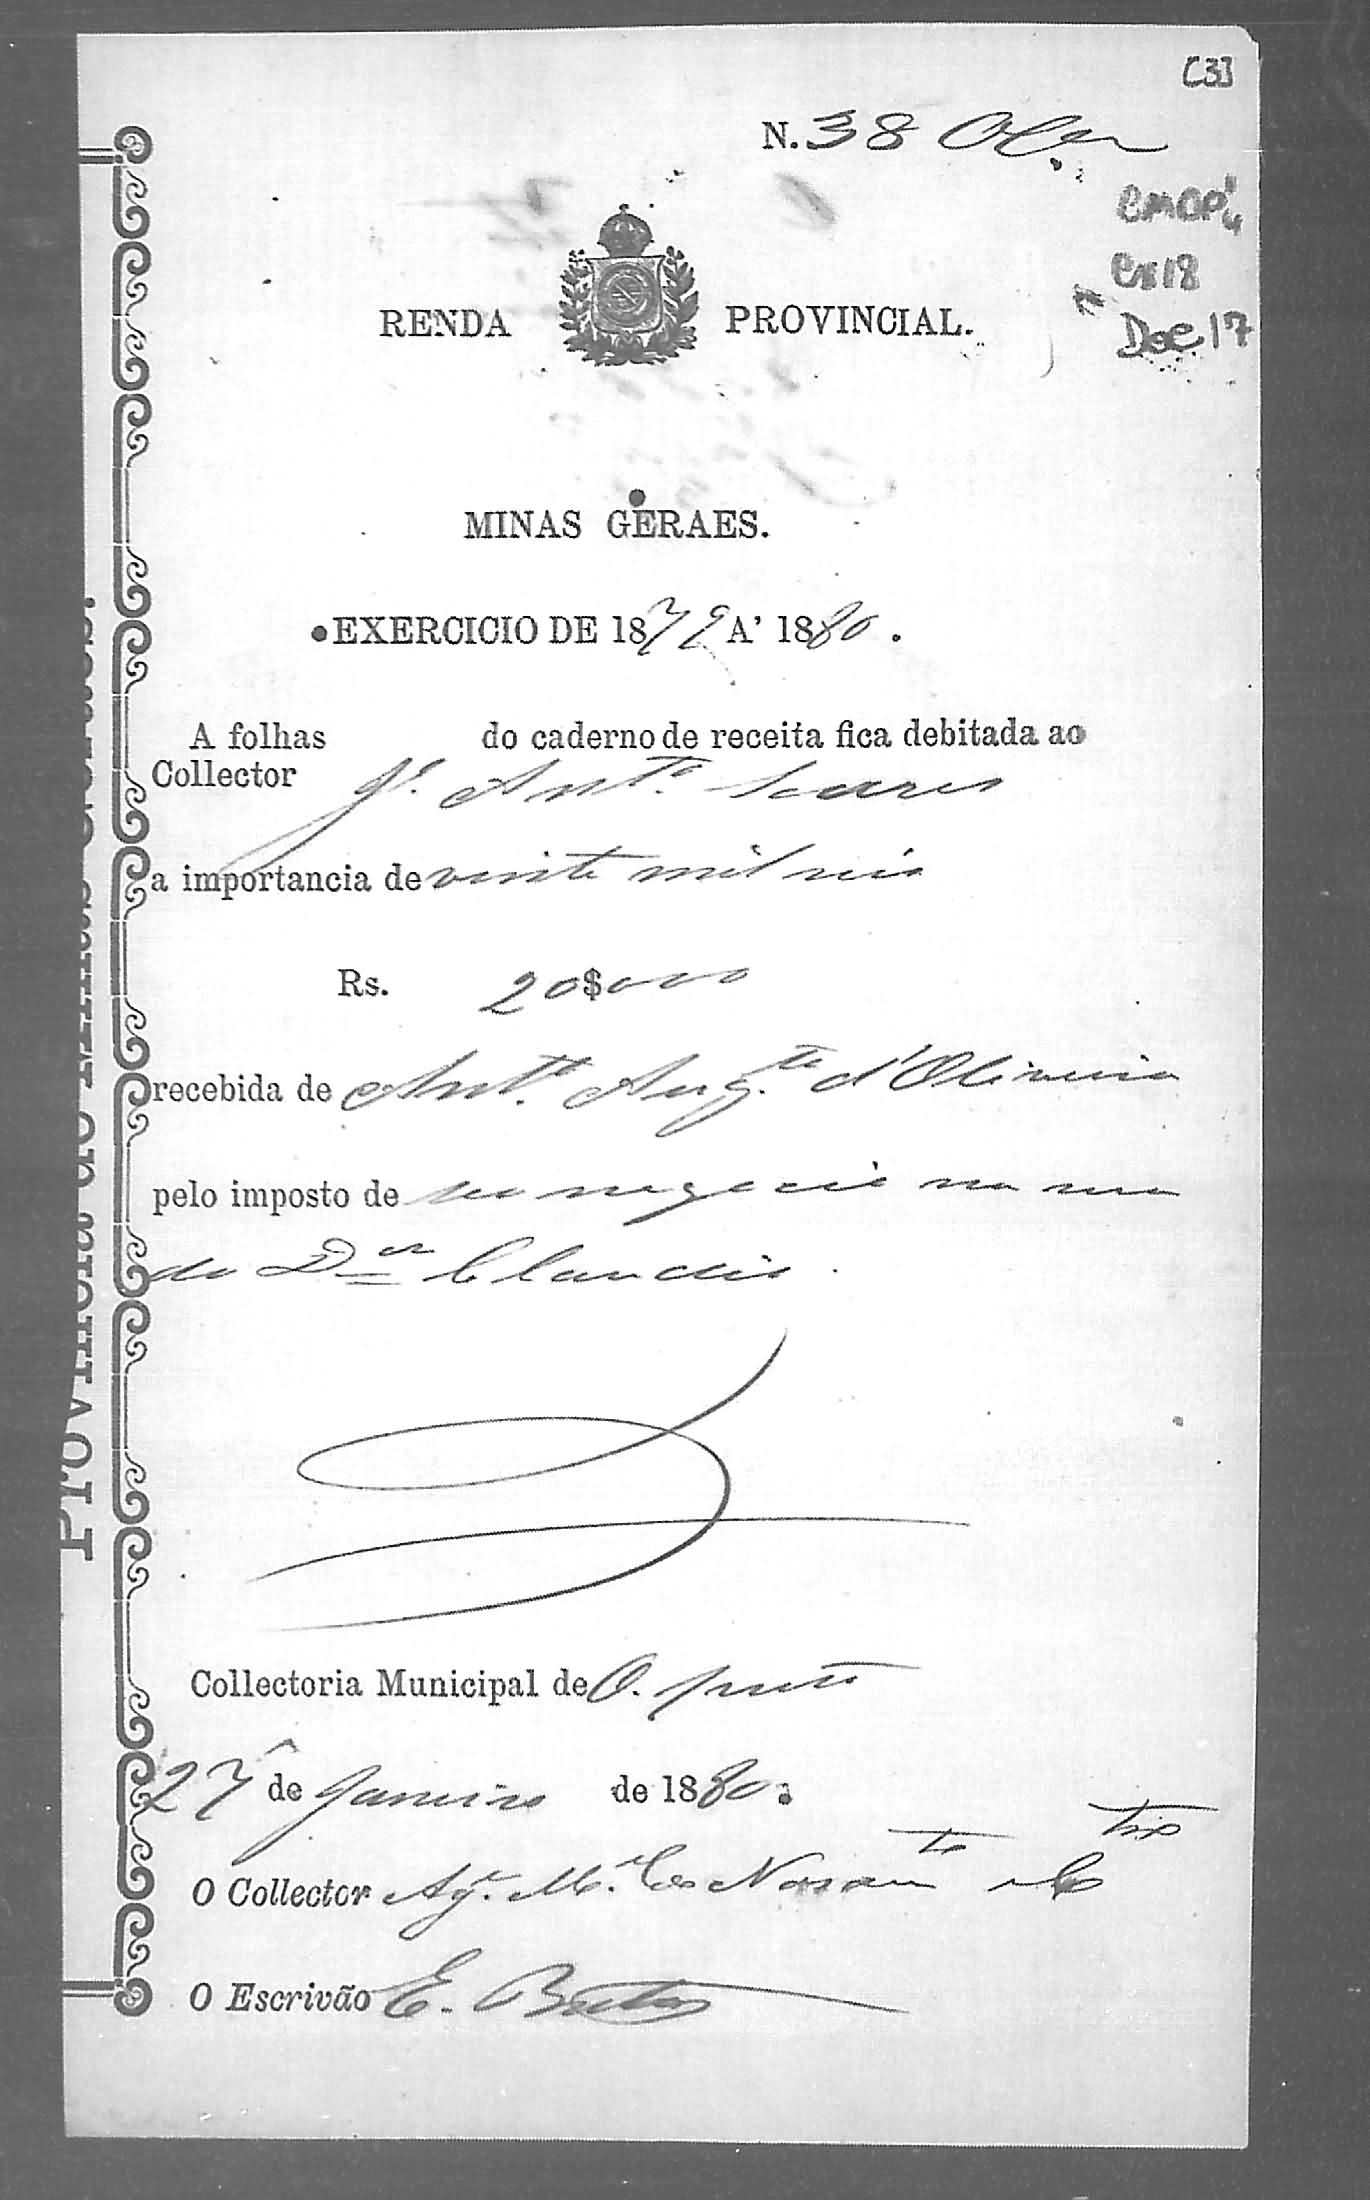 [3]
N. 38
CMOP
Cx 18
Doc 17
RENDA PROVINCIAL.
MINAS GERAES.
EXERCICIO DE 1879 A' 1880.
A folhas do caderno de receita fica debitada ao
Collector Je. Anto. Soares
a importancia de vinte mil reis
Rs. 20$000
recebida de Anto. Augto. d'Oliveira
pelo imposto de seu negocio na rua
do Dor Claudio.
Collectoria Municipal de O. preto
27 de Janeiro de 1880.
O Collector
O Escrivão E.
Provincia de Minas Geraes.